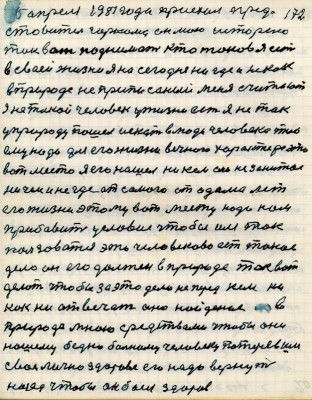 15 апреля 1981 года приехал пред 172
ставител черкаша с мою историею
так вот поднимат кто такой я ест
в своей жизни я на сегодня нигде и никак
в природе не приписаный меня считают
я не такой человек у жизни ест я не так
у природу пошел искат в людях человека тило
ему надо для его жизни вечного характера это
вот место я его нашел ни кем оно не занятое
ничем и негде от самого от адама лет
его жизни этому вот месту надо нам
прибавить условие чтобы им так
ползоватся эти человеково ест такое
дело он его должен в природе так вот
делат чтобы за это дело не перед кем ни
как ни отвечат оно найденое в
природе много средствами чтобы они
нашему бедно болному человеку потерявшим
свое лично здоровье его надо вернут
назад чтобы он был здоров